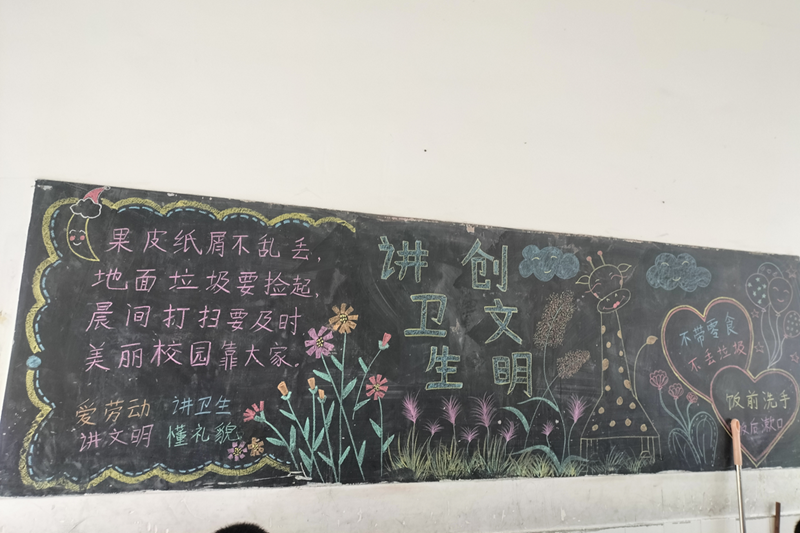 果皮纸屑不乱丢,
地面垃圾要捡起,
晨间打扫要及时,
美丽校园靠大家。
爱劳动 讲卫生
讲文明 懂礼貌
讲卫生
创文明
不带零食
不丢垃圾
饭前洗手
饭后漱口